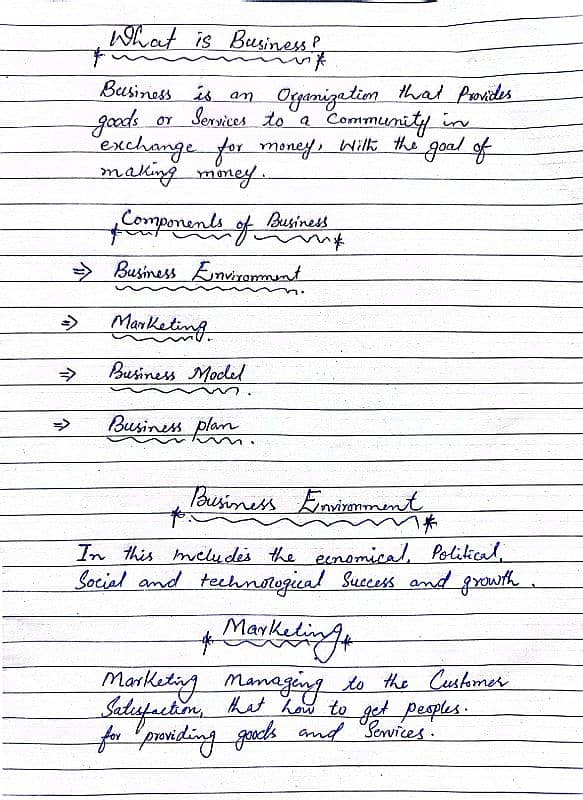 What is Business?
Business is an Organization that Provides
goods or Services to a Community in
exchange for money, With the goal of
making money.
Components of Business
⇒ Business Environment
⇒ Marketing.
⇒ Business Model.
⇒ Business plan.
Business Environment
In this includes the ecnomical, Political,
Social and technological Success and growth.
Marketing
Marketing Managing to the Customer
Satisfaction, that how to get peoples.
for providing goods and Services.